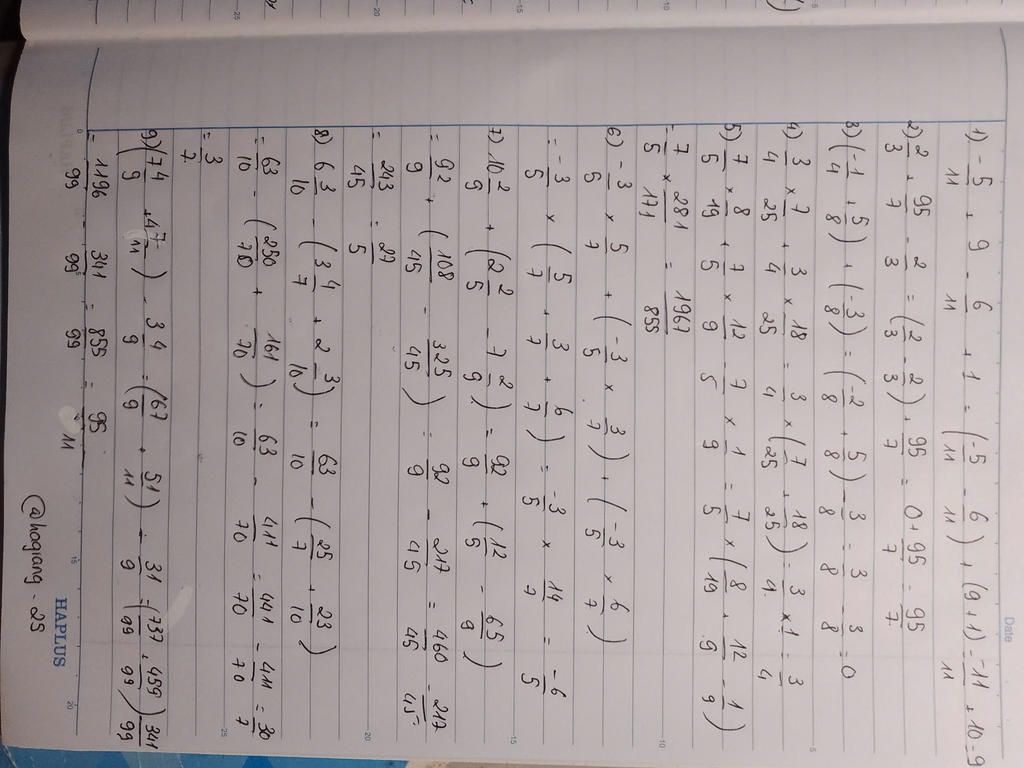 Date
1) -5/11 + 9 - 6/11 + 1 = (-5/11 - 6/11) + (9+1) = -11/11 + 10 = 9
2) 2/3 + 95/7 - 2/3 = (2/3 - 2/3) + 95/7 = 0 + 95/7 = 95/7
3) (-1/4 + 5/8) + (-3/8) = (-2/8 + 5/8) - 3/8 = 3/8 - 3/8 = 0
4) 3/4 × 7/25 + 3/4 × 18/25 = 3/4 × (7/25 + 18/25) = 3/4 × 1 = 3/4
5) 7/5 × 8/19 + 7/5 × 12/9 7/5 × 1/9 = 7/5 × (8/19 + 12/9 - 1/9)
= 7/5 × 281/171 = 1967/855
6) -3/5 × 5/7 + (-3/5 × 3/7) + (-3/5 × 6/7)
= -3/5 × (5/7 + 3/7 + 6/7) = -3/5 × 14/7 = -6/5
7) 10 2/9 + (2 2/5 - 7 2/9) = 92/9 + (12/5 - 65/9)
= 92/9 + (108/45 - 325/45) = 92/9 - 217/45 = 460/45 - 217/45 =
= 243/45 = 27/5
8) 6 3/10 - (3 4/7 + 2 3/10) = 63/10 - (25/7 + 23/10)
= 63/10 - (250/70 + 161/70) = 63/10 - 411/70 = 441/70 - 411/70 = 30/7
= 3/7
9) (7 4/9 + 4 7/11) - 3 4/9 = (67/9 + 51/11) - 31/9 = (737/99 + 459/99) 341/99
= 1196/99 - 341/99 = 855/99 = 95/11
@hoqiang - 25
HAPLUS